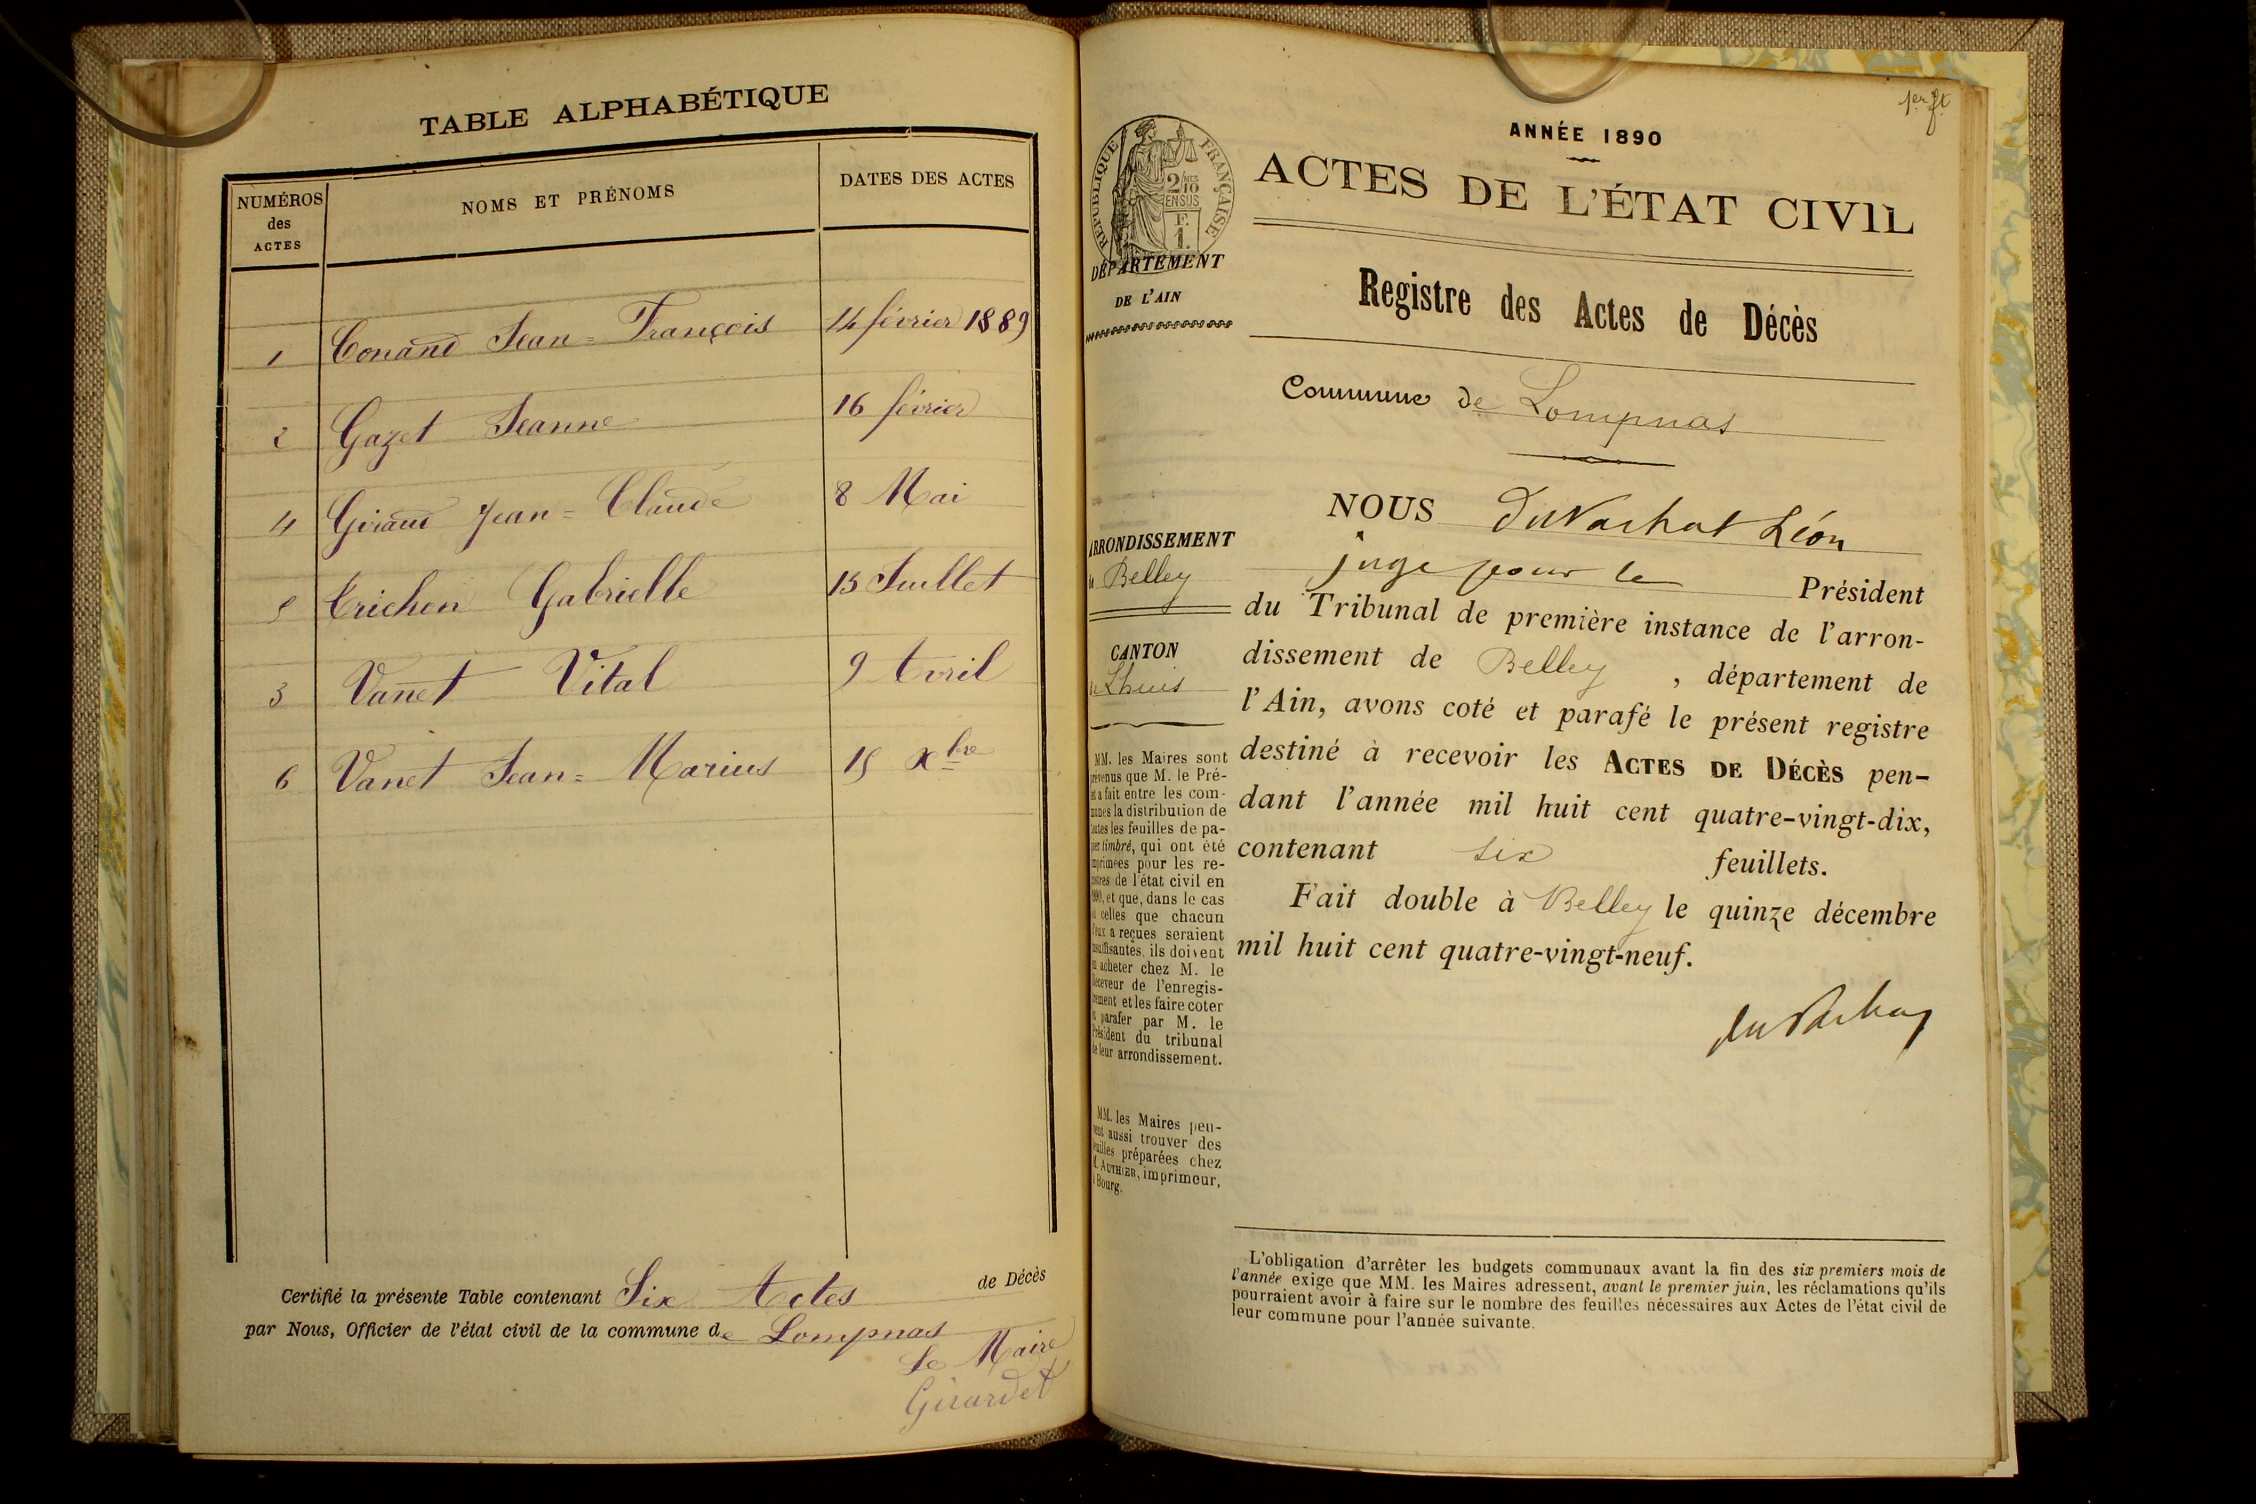 TABLE ALPHABÉTIQUE
NUMÉROS des ACTES
NOMS ET PRÉNOMS
DATES DES ACTES
1 Conand Jean=François 14 février 1889
2 Gazet Jeanne 16 février
4 Giraud Jean=Claude 8 Mai
5 Trichon Gabrielle 15 Juillet
3 Vanet Vital 9 Avril
6 Vanet Jean=Marius 15 Xbre
Certifié la présente Table contenant Six Actes de Décès
par Nous, Officier de l'état civil de la commune de Lompnas
Le Maire
Girardet
1er ft
ANNÉE 1890
ACTES DE L'ÉTAT CIVIL
RÉPUBLIQUE FRANÇAISE
2/10 EN SUS
F.
1.
DÉPARTEMENT
DE L'AIN
Registre des Actes de Décès
Commune de Lompnas
ARRONDISSEMENT
de Belley
CANTON
de Lhuis
NOUS DuVachat Léon
juge pour le Président
du Tribunal de première instance de l'arron-
dissement de Belley, département de
l'Ain, avons coté et parafé le présent registre
destiné à recevoir les ACTES DE DÉCÈS pen-
dant l'année mil huit cent quatre-vingt-dix,
contenant six feuillets.
Fait double à Belley le quinze décembre
mil huit cent quatre-vingt-neuf.
duVachat
MM. les Maires sont
prévenus que M. le Pré-
fet a fait entre les com-
munes la distribution de
toutes les feuilles de pa-
pier timbré, qui ont été
imprimées pour les re-
gistres de l'état civil en
1890, et que, dans le cas
où celles que chacun
d'eux a reçues seraient
insuffisantes, ils doivent
en acheter chez M. le
Receveur de l'enregis-
trement et les faire coter
et parafer par M. le
Président du tribunal
de leur arrondissement.
MM. les Maires peu-
vent aussi trouver des
feuilles préparées chez
M. AUTHIER, imprimeur,
à Bourg.
L'obligation d'arrêter les budgets communaux avant la fin des six premiers mois de
l'année exige que MM. les Maires adressent, avant le premier juin, les réclamations qu'ils
pourraient avoir à faire sur le nombre des feuilles nécessaires aux Actes de l'état civil de
leur commune pour l'année suivante.